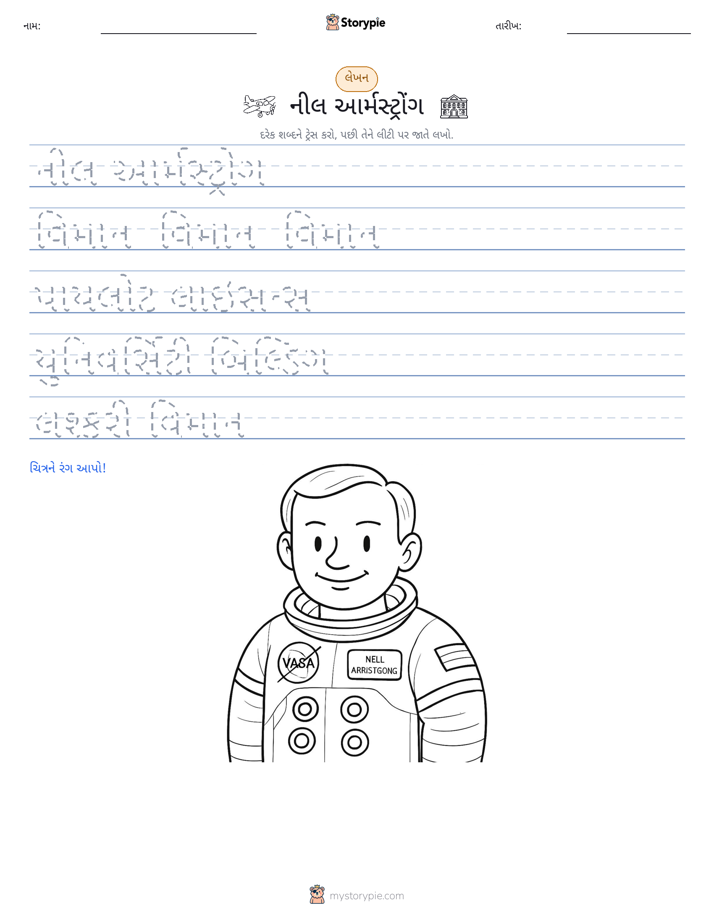 નામ:
Storypie
તારીખ:
લેખન
નીલ આર્મસ્ટ્રોંગ
દરેક શબ્દને ટ્રેસ કરો, પછી તેને લીટી પર જાતે લખો.
નીલ આર્મસ્ટ્રોંગ
વિમાન વિમાન વિમાન
પાયલોટ લાઇસન્સ
યુનિવર્સિટી બિલ્ડિંગ
લશ્કરી વિમાન
ચિત્રને રંગ આપો!
VASA
NELL
ARRISTGONG
mystorypie.com